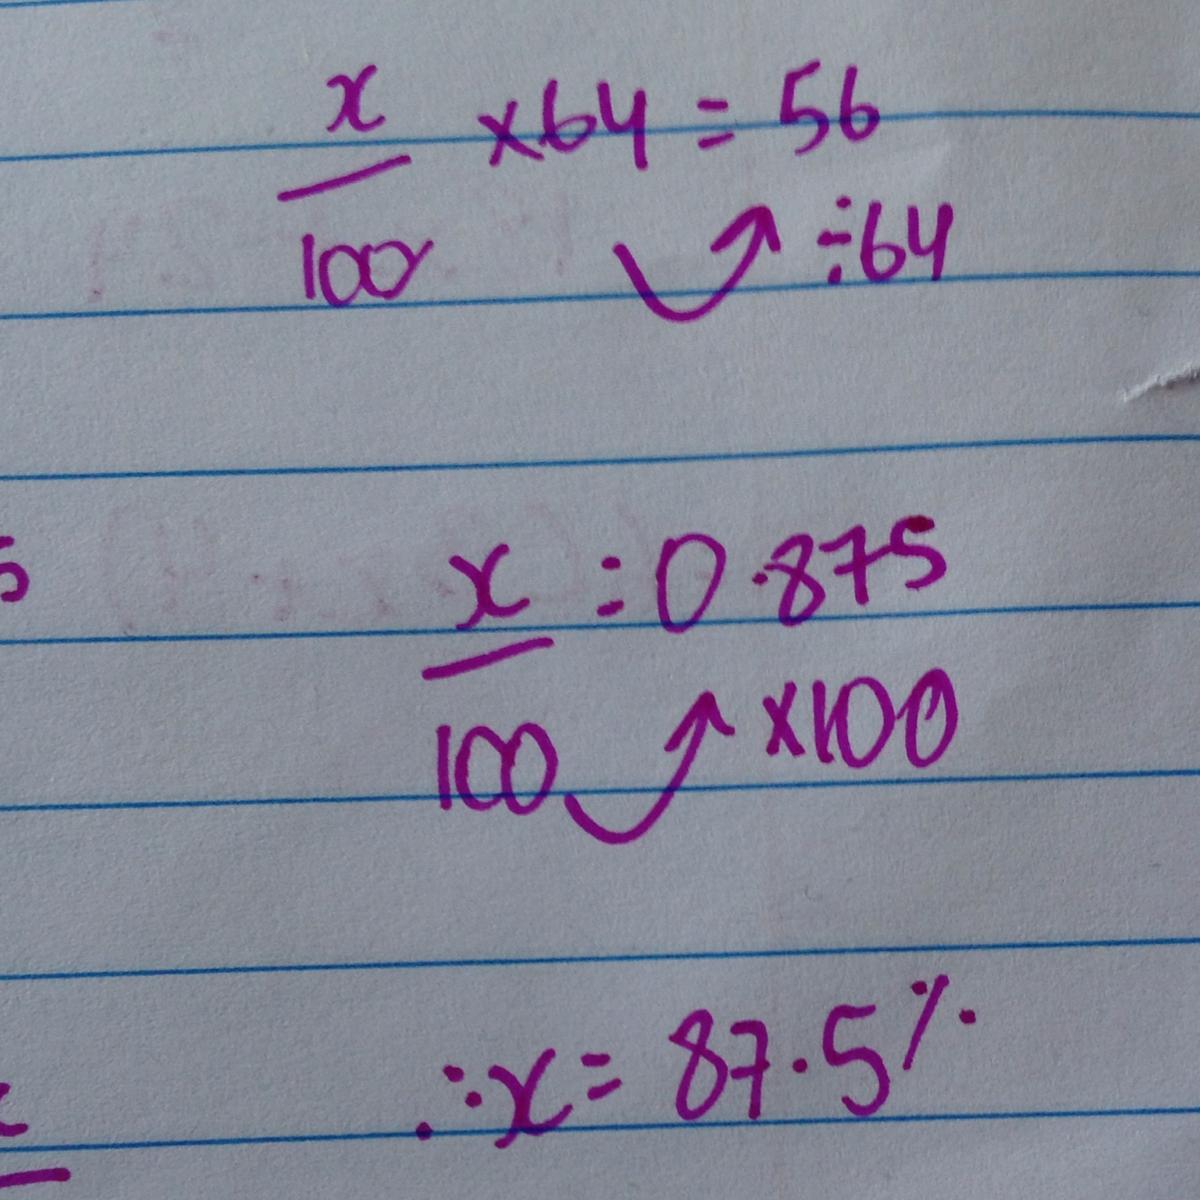 x/100 ×64 = 56
÷64
5
x/100 = 0.875
×100
∴x = 87.5%